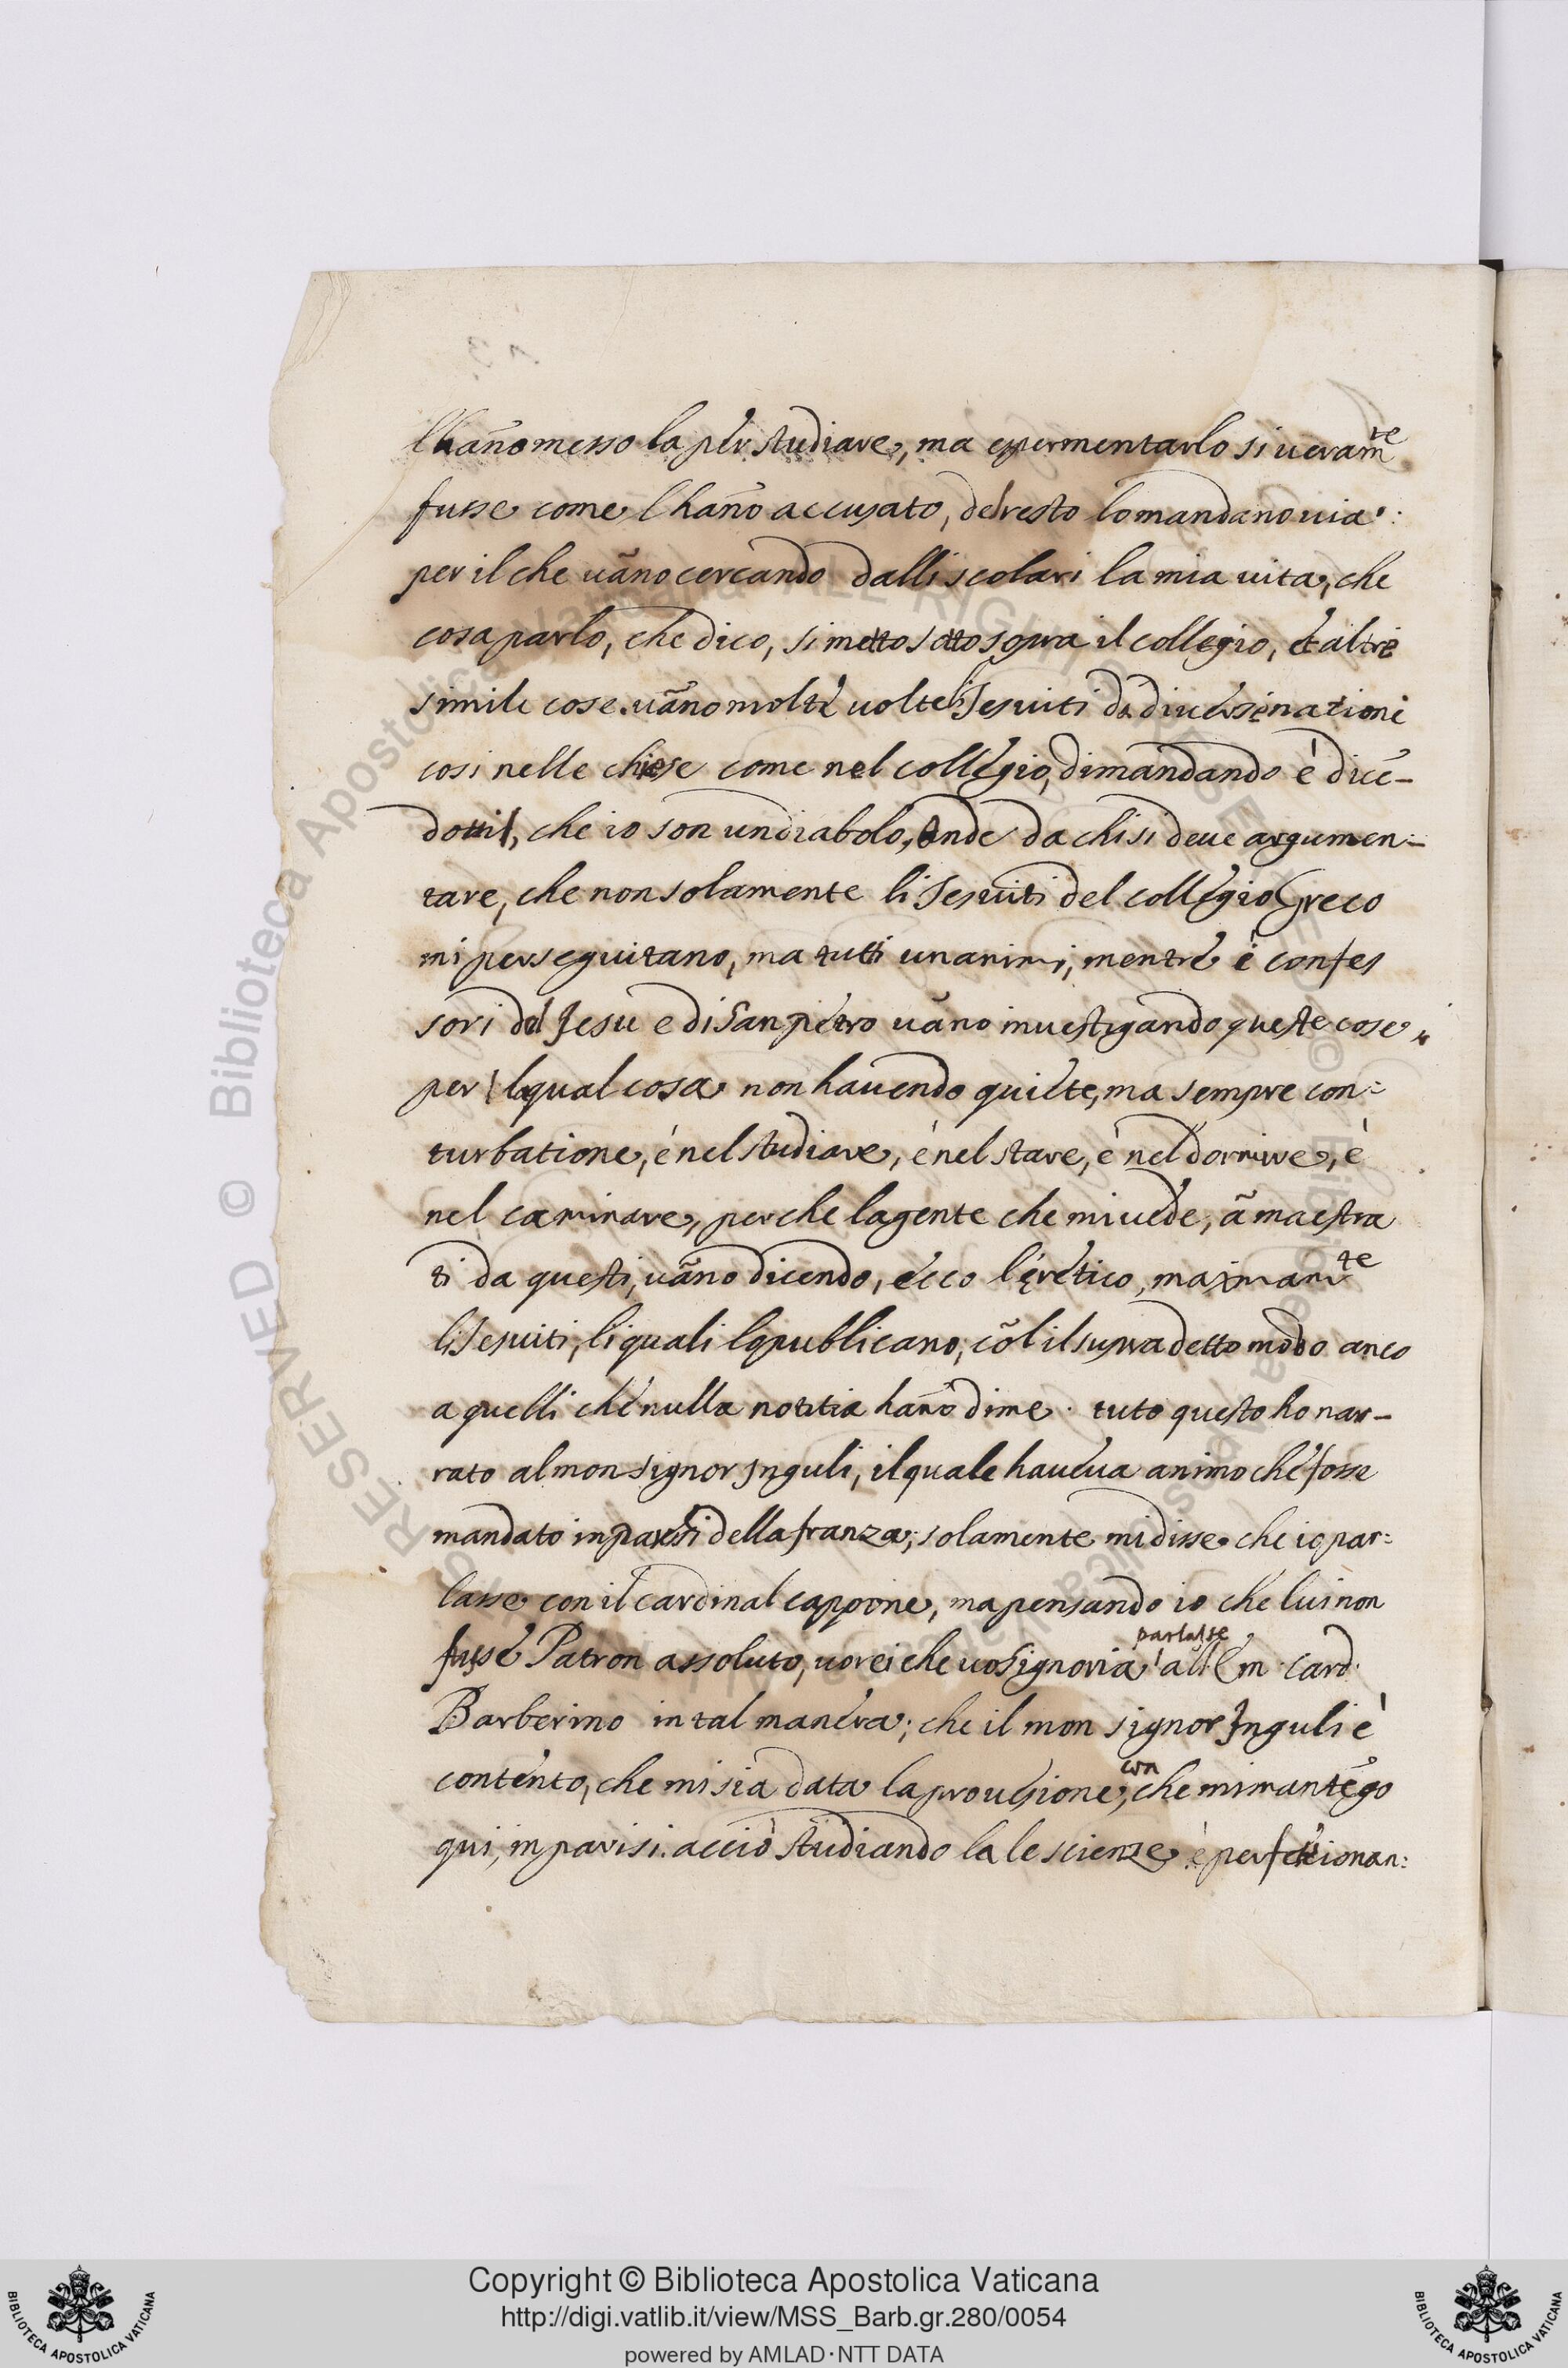 l hañomesso la per studiare, ma epermentarlo si ueramte
fusse come l haño accusato, del resto lo mandano uia:
per il che uãno cercando dalli scolari la mia uita, che
cosa parlo, che dico, si metto sotto sopra il collegio, et altre
simile cose. uãno molte uolte li Jesuiti da diuerse natione
cosi nelle chiese come nel collegio, dimandando è dicē-
che io son un diabolo, Onde da chi si deue argumen-
tare, che non solamente li Jesuiti del collegio Greco
mi perseguitano, ma tutti unanimi, mentre i confes
sori del Jesu e di San pietro uãno inuestigando queste cose,
per la qual cosa non hauendo quiete, ma sempre con:
turbatione, è nel studiare, è nel stare, è nel dormire, è
nel caminare, perche la gente che mi uede, ãmaestra
ti da questi, uãno dicendo, ecco l'eretico, maximamte
li Jesuiti, li quali lo publicano, cõl il supradetto modo anco
a quelli che nulla notitia haño di me. tuto questo ho nar-
rato al monsignor Jnguli, il quale haueua animo che fosse
mandato in parisi della franza, solamente mi disse che io par:
lasse con il cardinal cappone, ma pensando io che lui non
fusse Patron assoluto, uorei che uosignoria parlasse all Em. Card.
Barberino in tal manera; che il mon signor Jnguli è
contento, che mi sia data la prouisione, con che mi mantēgo
qui, in parisi. acciò studiando la le scienze è perfetionan:
Copyright © Biblioteca Apostolica Vaticana
http://digi.vatlib.it/view/MSS_Barb.gr.280/0054
powered by AMLAD·NTT DATA